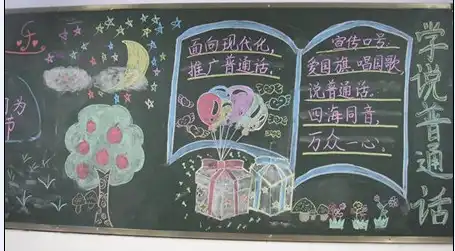 乐
为
节
面向现代化,
推广普通话,
宣传口号
爱国旗 唱国歌
说普通话.
四海同音,
万众一心.
学说普通话